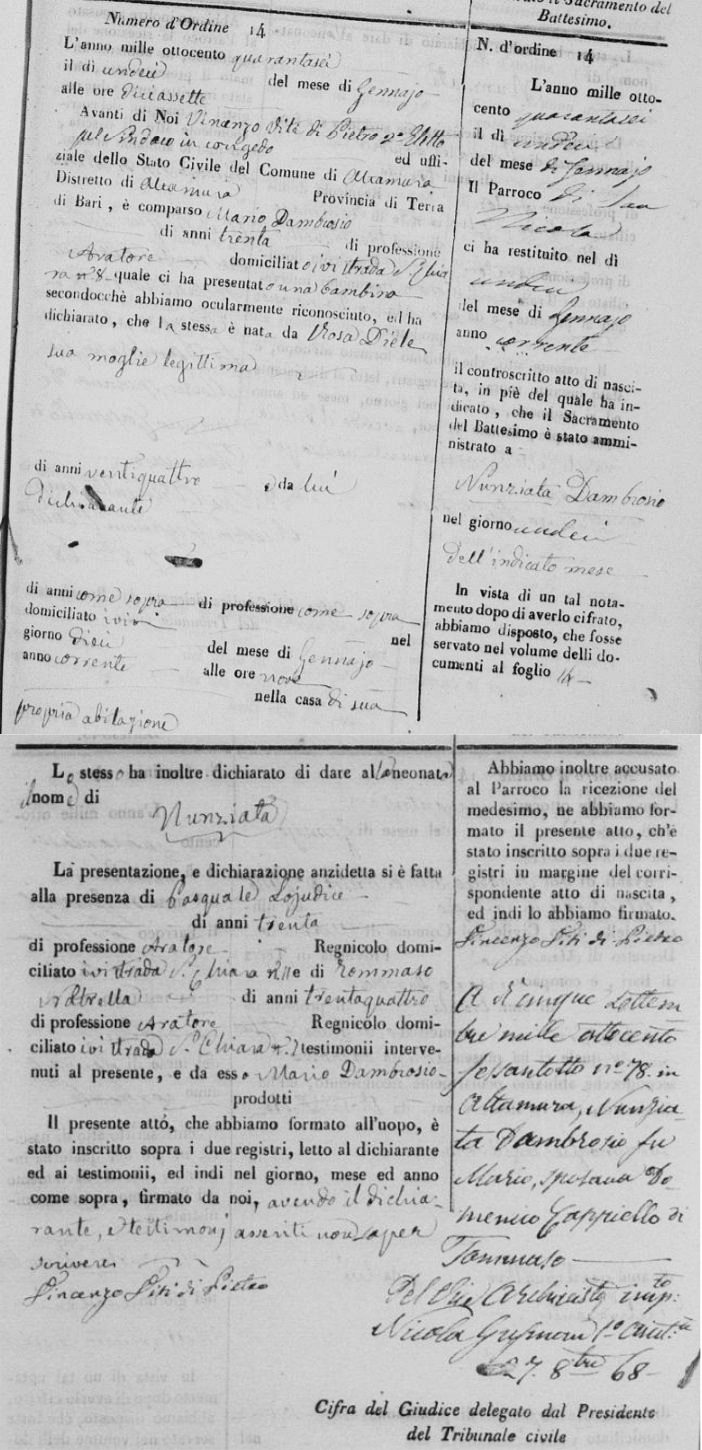 Numero d'Ordine 14
L'anno mille ottocento quarantasei
il dì undeci del mese di Gennajo
alle ore diciassette
Avanti di Noi Vincenzo Viti di Pietro 2° Eletto
pel Sindaco in congedo ed uffi-
ziale dello Stato Civile del Comune di Altamura
Distretto di Altamura Provincia di Terra
di Bari, è comparso Mario Dambrosio
di anni trenta di professione
Aratore domiciliato ivi strada S. Chia
ra n° 8 quale ci ha presentato una bambina
secondocchè abbiamo ocularmente riconosciuto, ed ha
dichiarato, che la stessa è nata da Rosa Diele
sua moglie legittima
di anni ventiquattro da lui
dichiarante
di anni come sopra di professione come sopra
domiciliato ivi nel
giorno dieci del mese di Gennajo
anno corrente alle ore nove
nella casa di sua
propria abitazione
Sacramento del
Battesimo.
N. d'ordine 14
L'anno mille otto-
cento quarantasei
il dì undeci
del mese di Gennajo
Il Parroco di San
Nicola
ci ha restituito nel dì
undeci
del mese di Gennajo
anno corrente
il controscritto atto di nasci-
ta, in piè del quale ha in-
dicato, che il Sacramento
del Battesimo è stato ammi-
nistrato a
Nunziata Dambrosio
nel giorno undeci
dell'indicato mese
In vista di un tal nota-
mento dopo di averlo cifrato,
abbiamo disposto, che fosse
servato nel volume delli do-
cumenti al foglio 14
Lo stesso ha inoltre dichiarato di dare alla neonata
il nome di
Nunziata
La presentazione, e dichiarazione anzidetta si è fatta
alla presenza di Pasquale Lojudice
di anni trenta
di professione Aratore Regnicolo domi-
ciliato ivi strada S. Chiara e di Tommaso
di anni trentaquattro
di professione Aratore Regnicolo domi-
ciliato ivi strada S. Chiara testimonii interve-
nuti al presente, e da esso Mario Dambrosio
prodotti
Il presente atto, che abbiamo formato all'uopo, è
stato inscritto sopra i due registri, letto al dichiarante
ed ai testimonii, ed indi nel giorno, mese ed anno
come sopra, firmato da noi, avendo il dichia-
rante, e testimonj asseriti non saper
scrivere
Vincenzo Viti di Pietro
Abbiamo inoltre accusato
al Parroco la ricezione del
medesimo, ne abbiamo for-
mato il presente atto, ch'è
stato inscritto sopra i due re-
gistri in margine del corri-
spondente atto di nascita,
ed indi lo abbiamo firmato.
Vincenzo Viti di Pietro
A dì cinque Settem
bre mille ottocento
sessantotto n° 78. in
Altamura, Nunzia-
ta Dambrosio fu
Mario, sposava Do
menico Cappiello di
Tommaso
Pel Archivista imp:to
Nicola
27. 8bre 68
Cifra del Giudice delegato dal Presidente
del Tribunale civile